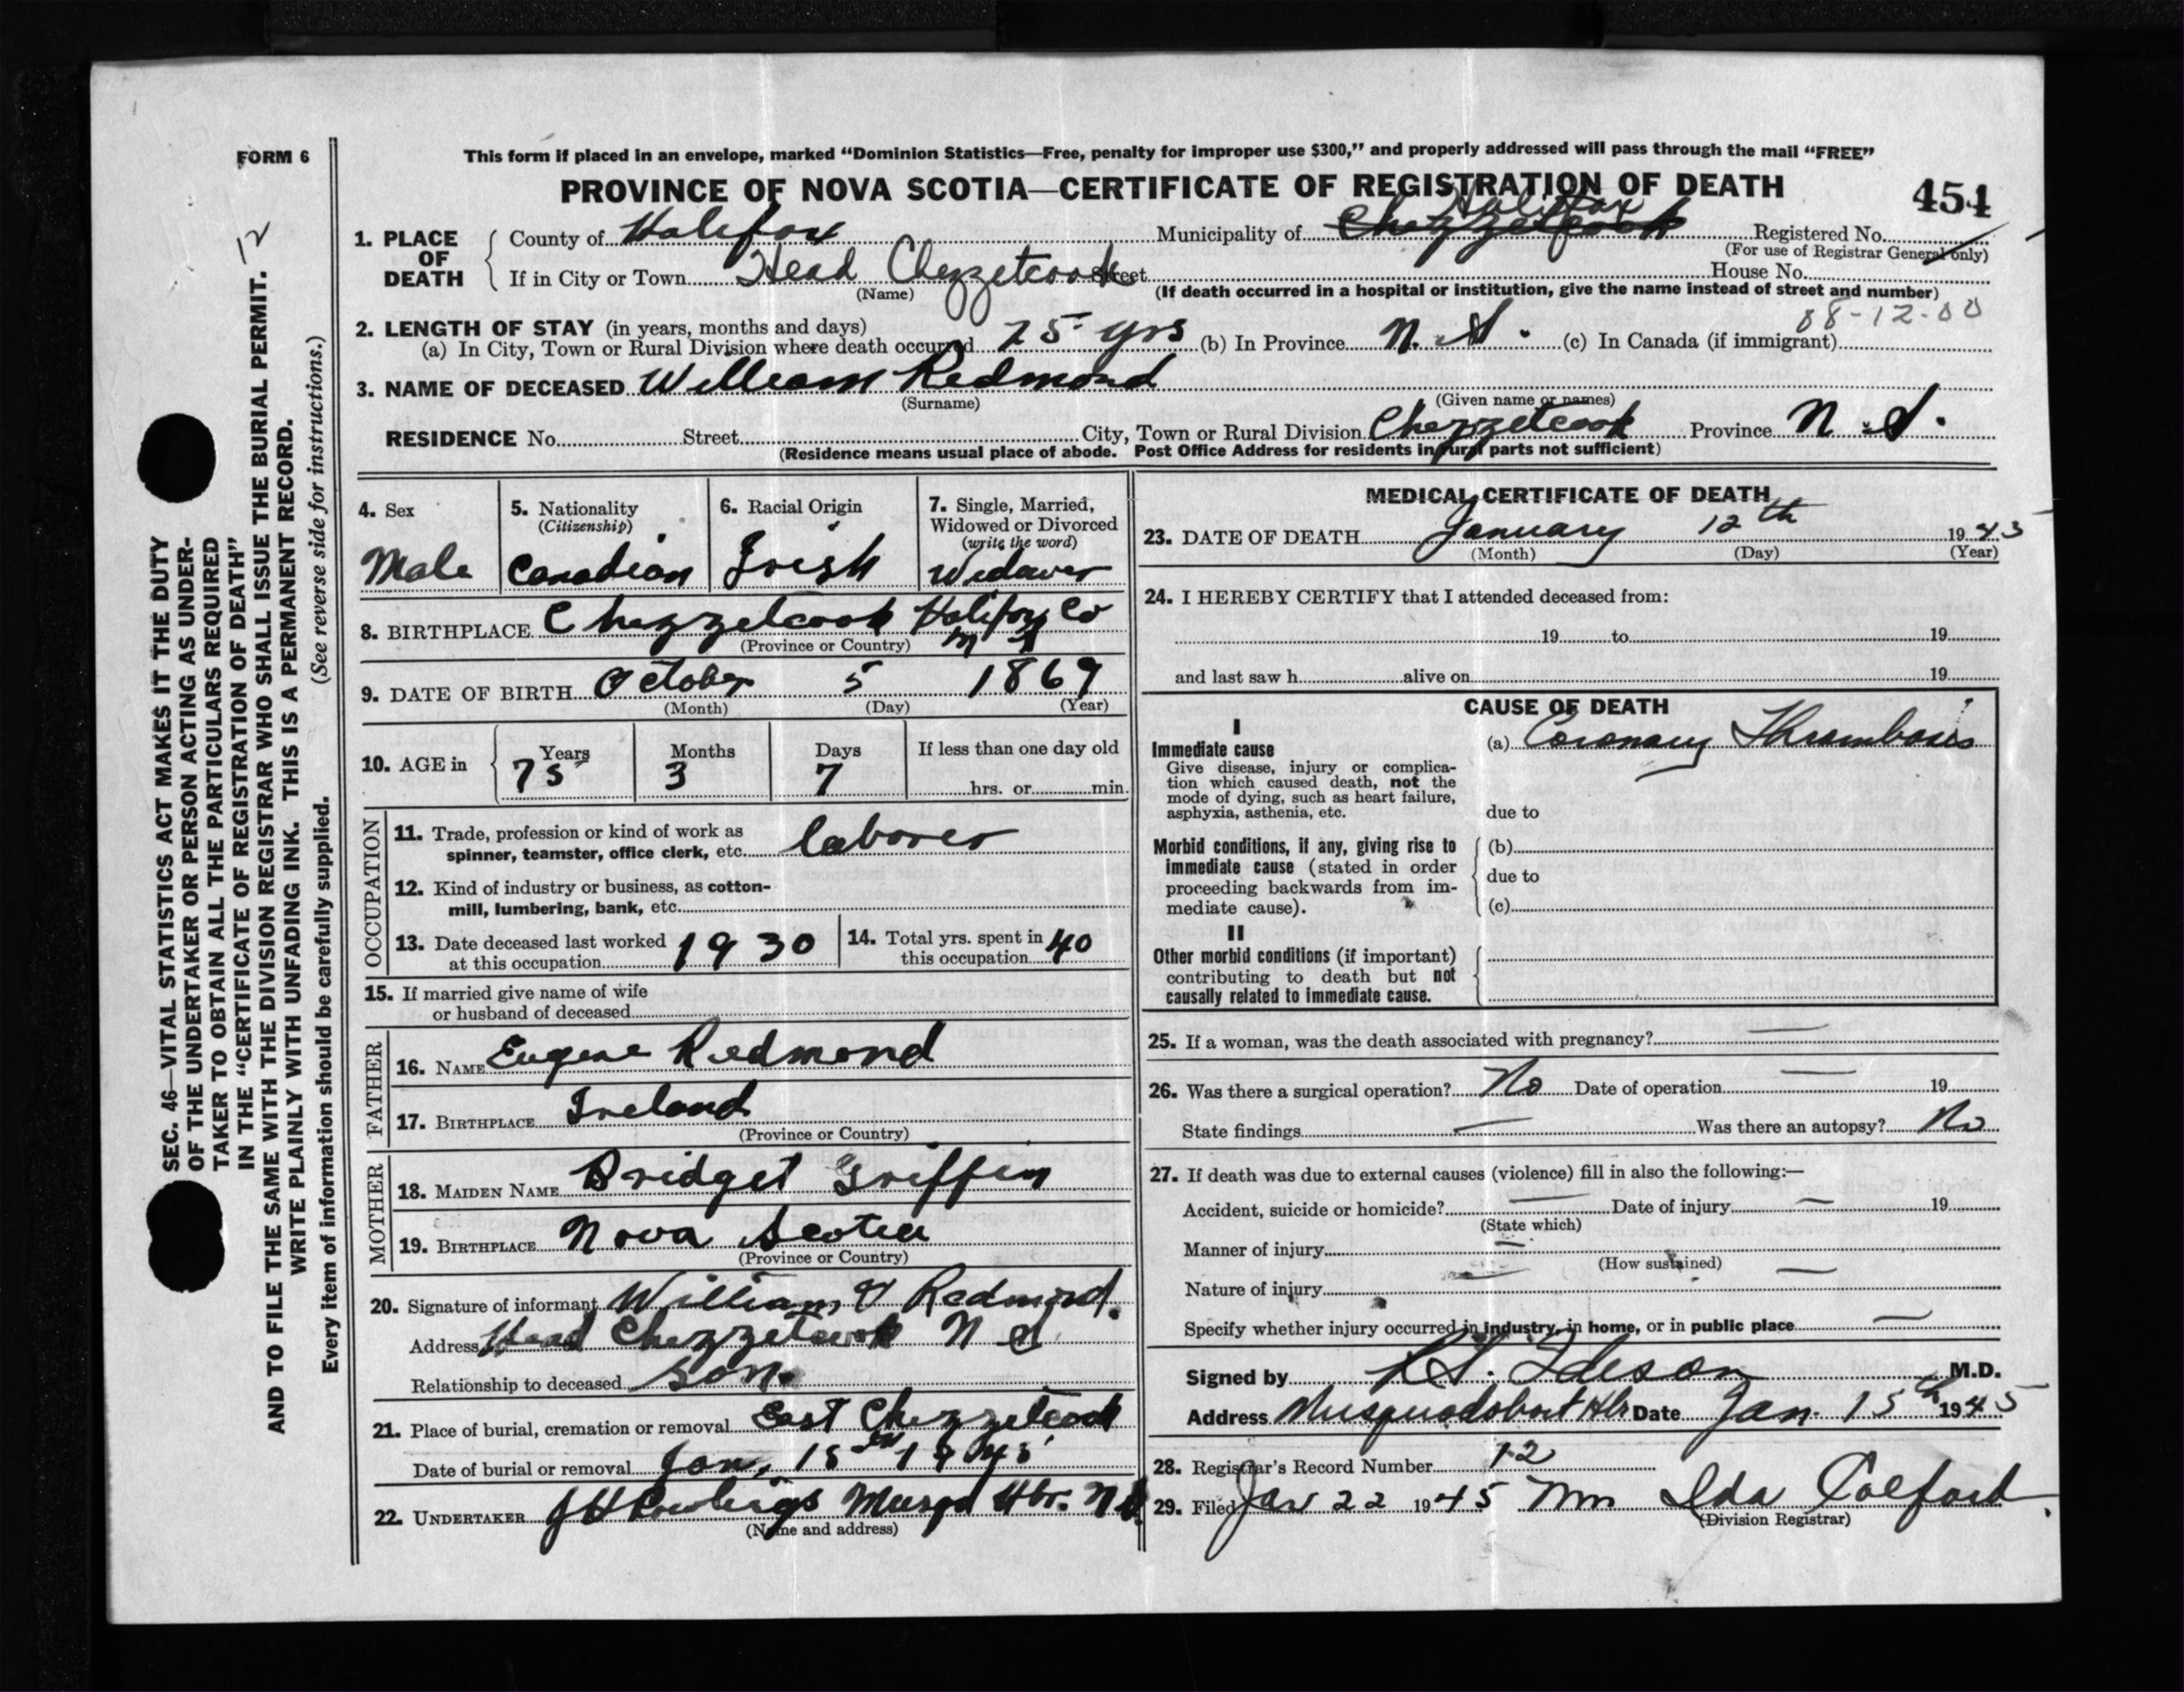 FORM 6
This form if placed in an envelope, marked “Dominion Statistics—Free, penalty for improper use $300,” and properly addressed will pass through the mail “FREE”
PROVINCE OF NOVA SCOTIA—CERTIFICATE OF REGISTRATION OF DEATH
454
12
1. PLACE OF DEATH
County of Halifax Municipality of Chezzetcook Halifax Registered No.
(For use of Registrar General only)
If in City or Town Head Chezzetcook Street House No.
(Name) (If death occurred in a hospital or institution, give the name instead of street and number)
08-12-00
2. LENGTH OF STAY (in years, months and days)
(a) In City, Town or Rural Division where death occurred 75 yrs (b) In Province N. S. (c) In Canada (if immigrant)
3. NAME OF DECEASED William Redmond
(Surname) (Given name or names)
RESIDENCE No. Street City, Town or Rural Division Chezzetcook Province N. S.
(Residence means usual place of abode. Post Office Address for residents in rural parts not sufficient)
SEC. 46—VITAL STATISTICS ACT MAKES IT THE DUTY
OF THE UNDERTAKER OR PERSON ACTING AS UNDER-
TAKER TO OBTAIN ALL THE PARTICULARS REQUIRED
IN THE “CERTIFICATE OF REGISTRATION OF DEATH”
AND TO FILE THE SAME WITH THE DIVISION REGISTRAR WHO SHALL ISSUE THE BURIAL PERMIT.
WRITE PLAINLY WITH UNFADING INK. THIS IS A PERMANENT RECORD.
Every item of information should be carefully supplied. (See reverse side for instructions.)
4. Sex
Male
5. Nationality
(Citizenship)
Canadian
6. Racial Origin
Irish
7. Single, Married,
Widowed or Divorced
(write the word)
Widower
8. BIRTHPLACE Chezzetcook Halifax Co
(Province or Country) N S
9. DATE OF BIRTH October 5 1869
(Month) (Day) (Year)
10. AGE in
Years Months Days If less than one day old
75 3 7 hrs. or min.
OCCUPATION
11. Trade, profession or kind of work as
spinner, teamster, office clerk, etc. laborer
12. Kind of industry or business, as cotton-
mill, lumbering, bank, etc.
13. Date deceased last worked
at this occupation 1930
14. Total yrs. spent in
this occupation 40
15. If married give name of wife
or husband of deceased
FATHER
16. NAME Eugene Redmond
17. BIRTHPLACE Ireland
(Province or Country)
MOTHER
18. MAIDEN NAME Bridget Griffin
19. BIRTHPLACE Nova Scotia
(Province or Country)
20. Signature of informant William Redmond.
Address Head Chezzetcook N S
Relationship to deceased Son.
21. Place of burial, cremation or removal East Chezzetcook
Date of burial or removal Jan, 15th 1945
22. UNDERTAKER J H Rowlings Musqd Hbr. N S.
(Name and address)
MEDICAL CERTIFICATE OF DEATH
23. DATE OF DEATH January 12th 1945
(Month) (Day) (Year)
24. I HEREBY CERTIFY that I attended deceased from:
19 to 19
and last saw h alive on 19
CAUSE OF DEATH
I
Immediate cause
Give disease, injury or complica-
tion which caused death, not the
mode of dying, such as heart failure,
asphyxia, asthenia, etc.
(a) Coronary Thrombosis
due to
Morbid conditions, if any, giving rise to
immediate cause (stated in order
proceeding backwards from im-
mediate cause).
(b)
due to
(c)
II
Other morbid conditions (if important)
contributing to death but not
causally related to immediate cause.
25. If a woman, was the death associated with pregnancy? —
26. Was there a surgical operation? No Date of operation — 19
State findings — Was there an autopsy? No
27. If death was due to external causes (violence) fill in also the following:—
Accident, suicide or homicide? — Date of injury — 19
(State which)
Manner of injury —
(How sustained)
Nature of injury — —
Specify whether injury occurred in industry, in home, or in public place —
Signed by M.D.
Address Musquodoboit Hbr Date Jan. 15th 1945
28. Registrar's Record Number 12
29. Filed Jan 22 1945 Mrs Ida
(Division Registrar)